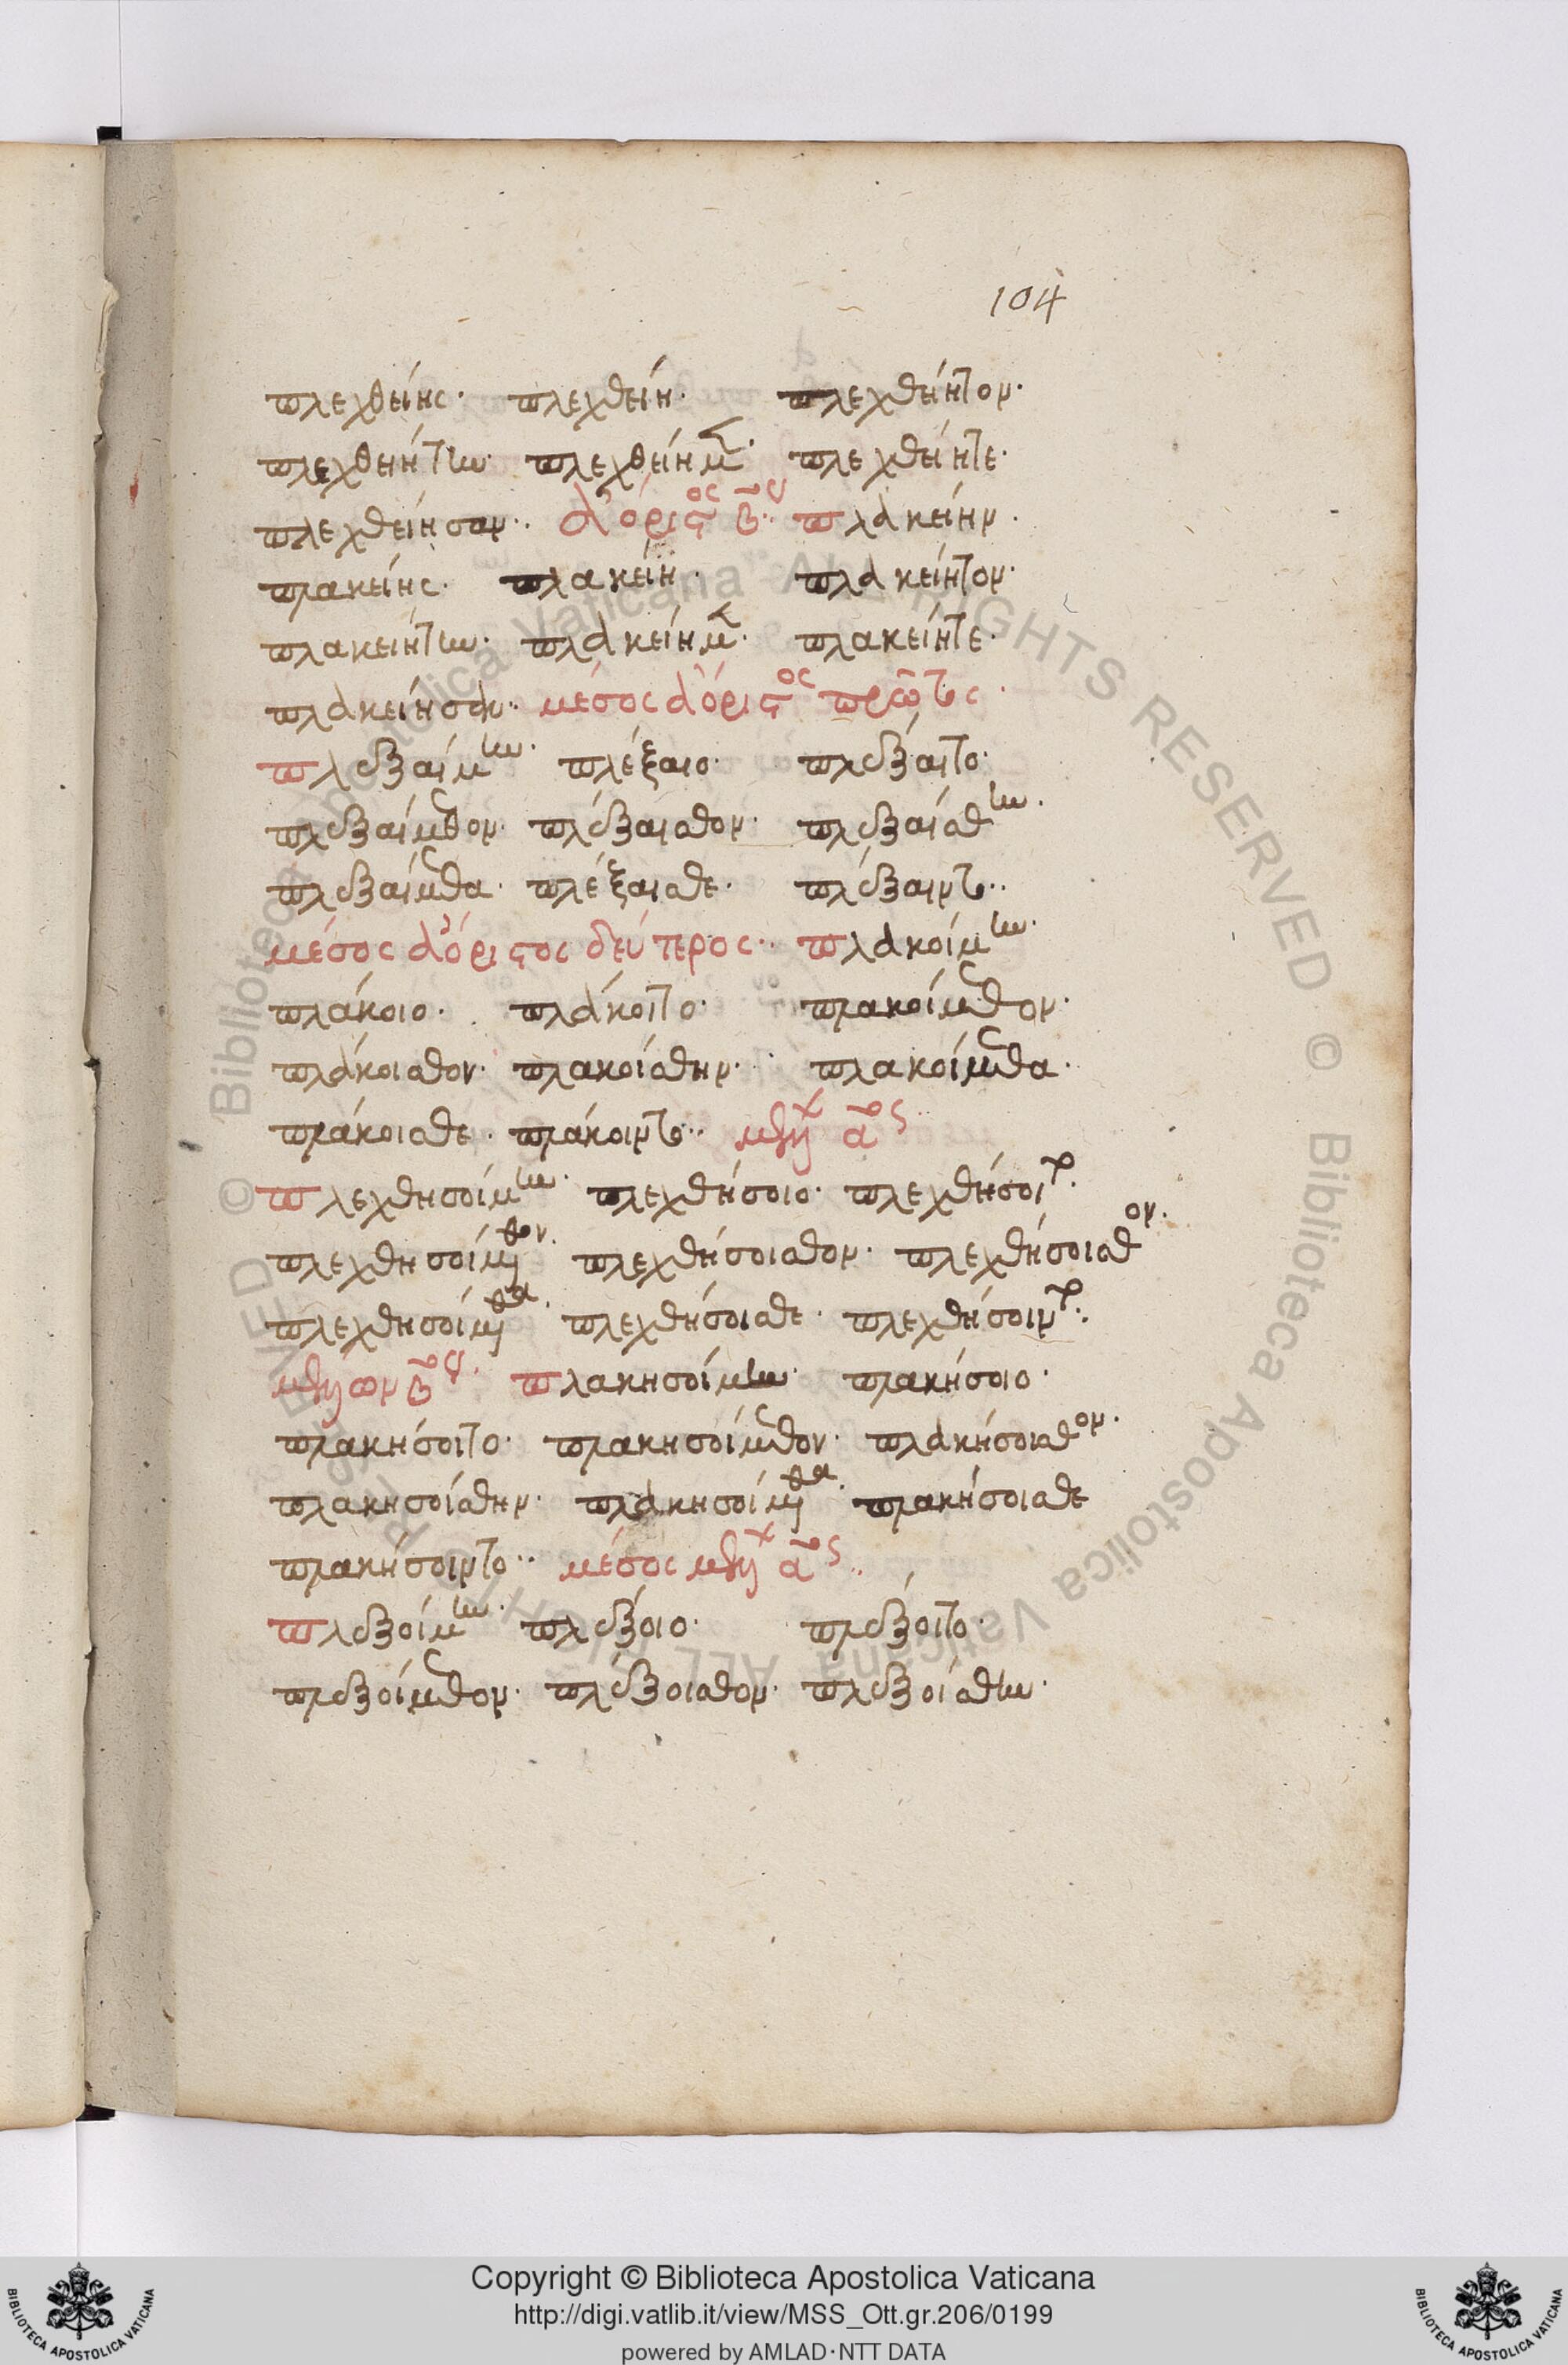 104
πλεχθείης· πλεχθείη· πλεχθείητον·
πλεχθειήτην· πλεχθείημεν· πλεχθείητε·
πλεχθείησαν·· ἀόριστος β´ου·· πλακείην·
πλακείης· πλακείη· πλακείητον·
πλακειήτην· πλακείημεν· πλακείητε·
πλακείησαν· μέσος ἀόριστος πρῶτος·
πλεξαίμην· πλέξαιο· πλέξαιτο·
πλεξαίμεθον· πλέξαισθον· πλεξαίσθην·
πλεξαίμεθα· πλέξαισθε· πλέξαιντο··
μέσος ἀόριστος δεύτερος·· πλακοίμην·
πλάκοιο· πλάκοιτο· πλακοίμεθον·
πλάκοισθον· πλακοίσθην· πλακοίμεθα·
πλάκοισθε· πλάκοιντο·· μελλ α´ος··
πλεχθησοίμην· πλεχθήσοιο· πλεχθήσοιτο·
πλεχθησοίμεθον· πλεχθήσοισθον· πλεχθήσοισθον·
πλεχθησοίμεθα· πλεχθήσοισθε· πλεχθήσοιντο·
μέλλων β´ου· πλακησοίμην· πλακήσοιο·
πλακήσοιτο· πλακησοίμεθον· πλακήσοισθον·
πλακησοίσθην· πλακησοίμεθα· πλακήσοισθε
πλακήσοιντο·· μέσος μελλ α´ος··
πλεξοίμην· πλέξοιο· πλέξοιτο·
πλεξοίμεθον· πλέξοισθον· πλεξοίσθην·
© Biblioteca Apostolica Vaticana ALL RIGHTS RESERVED © Biblioteca Apostolica Vaticana ALL RIGHTS RESERVED
Copyright © Biblioteca Apostolica Vaticana
http://digi.vatlib.it/view/MSS_Ott.gr.206/0199
powered by AMLAD·NTT DATA
BIBLIOTECA APOSTOLICA VATICANA
BIBLIOTECA APOSTOLICA VATICANA